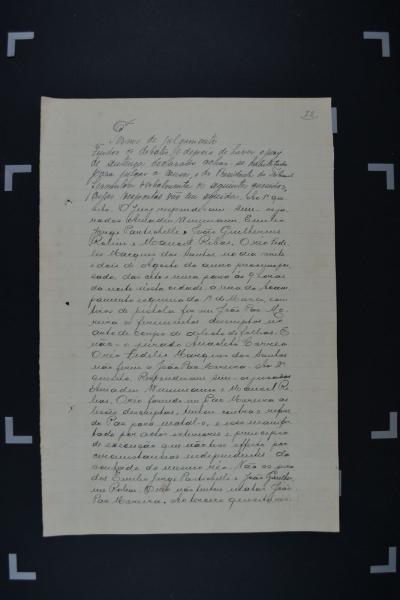 Termo de julgamento
Findos os debates, e depois de haver o juiz
de sentença declarado achar-se habilitado
para julgar a causa, o Presidente do Tribunal
formulou verbalmente os seguintes quesitos,
cujas respostas vão em seguida. Ao 1º que-
sito. O Jury respondeu sim os ju-
rados Amadeu Weinmann Emilio
Jorge Pantichelle e João Guilherme
Rolim e Manoel Ribas. O réo Fide-
lis Marques dos Santos no dia vinte
e dois de Agosto do anno proximo pas-
sado, das oito e meia para as 9 horas
da noite nesta cidade á rua do Acam-
pamento esquina da 1º de Março, com
tiros de pistola fez em João Paz Mo-
reira os ferimentos descriptos no
auto de corpo de delicto de folhas. E
não - o jurado Anacleto Correa
O réo Fidelis Marques dos Santos
não feriu a João Paz Moreira. Ao 2º
quesito. Responderam sim - os jurados
Amadeu Weinmann e Manoel Ri-
bas. O réo fazendo em Paz Moreira as
lesões descriptas, tentou contra a vida
de Paz para matal-o, e isso manifes-
tado por actos exteriores e principio
de execução que não teve effeito por
circumstancias independentes da
vontade do mesmo réo. Não os jura-
dos Emilio Jorge Pantichelle e João Guilher-
me Rolim. O réo não tentou matar João
Paz Moreira. Ao terceiro quesito